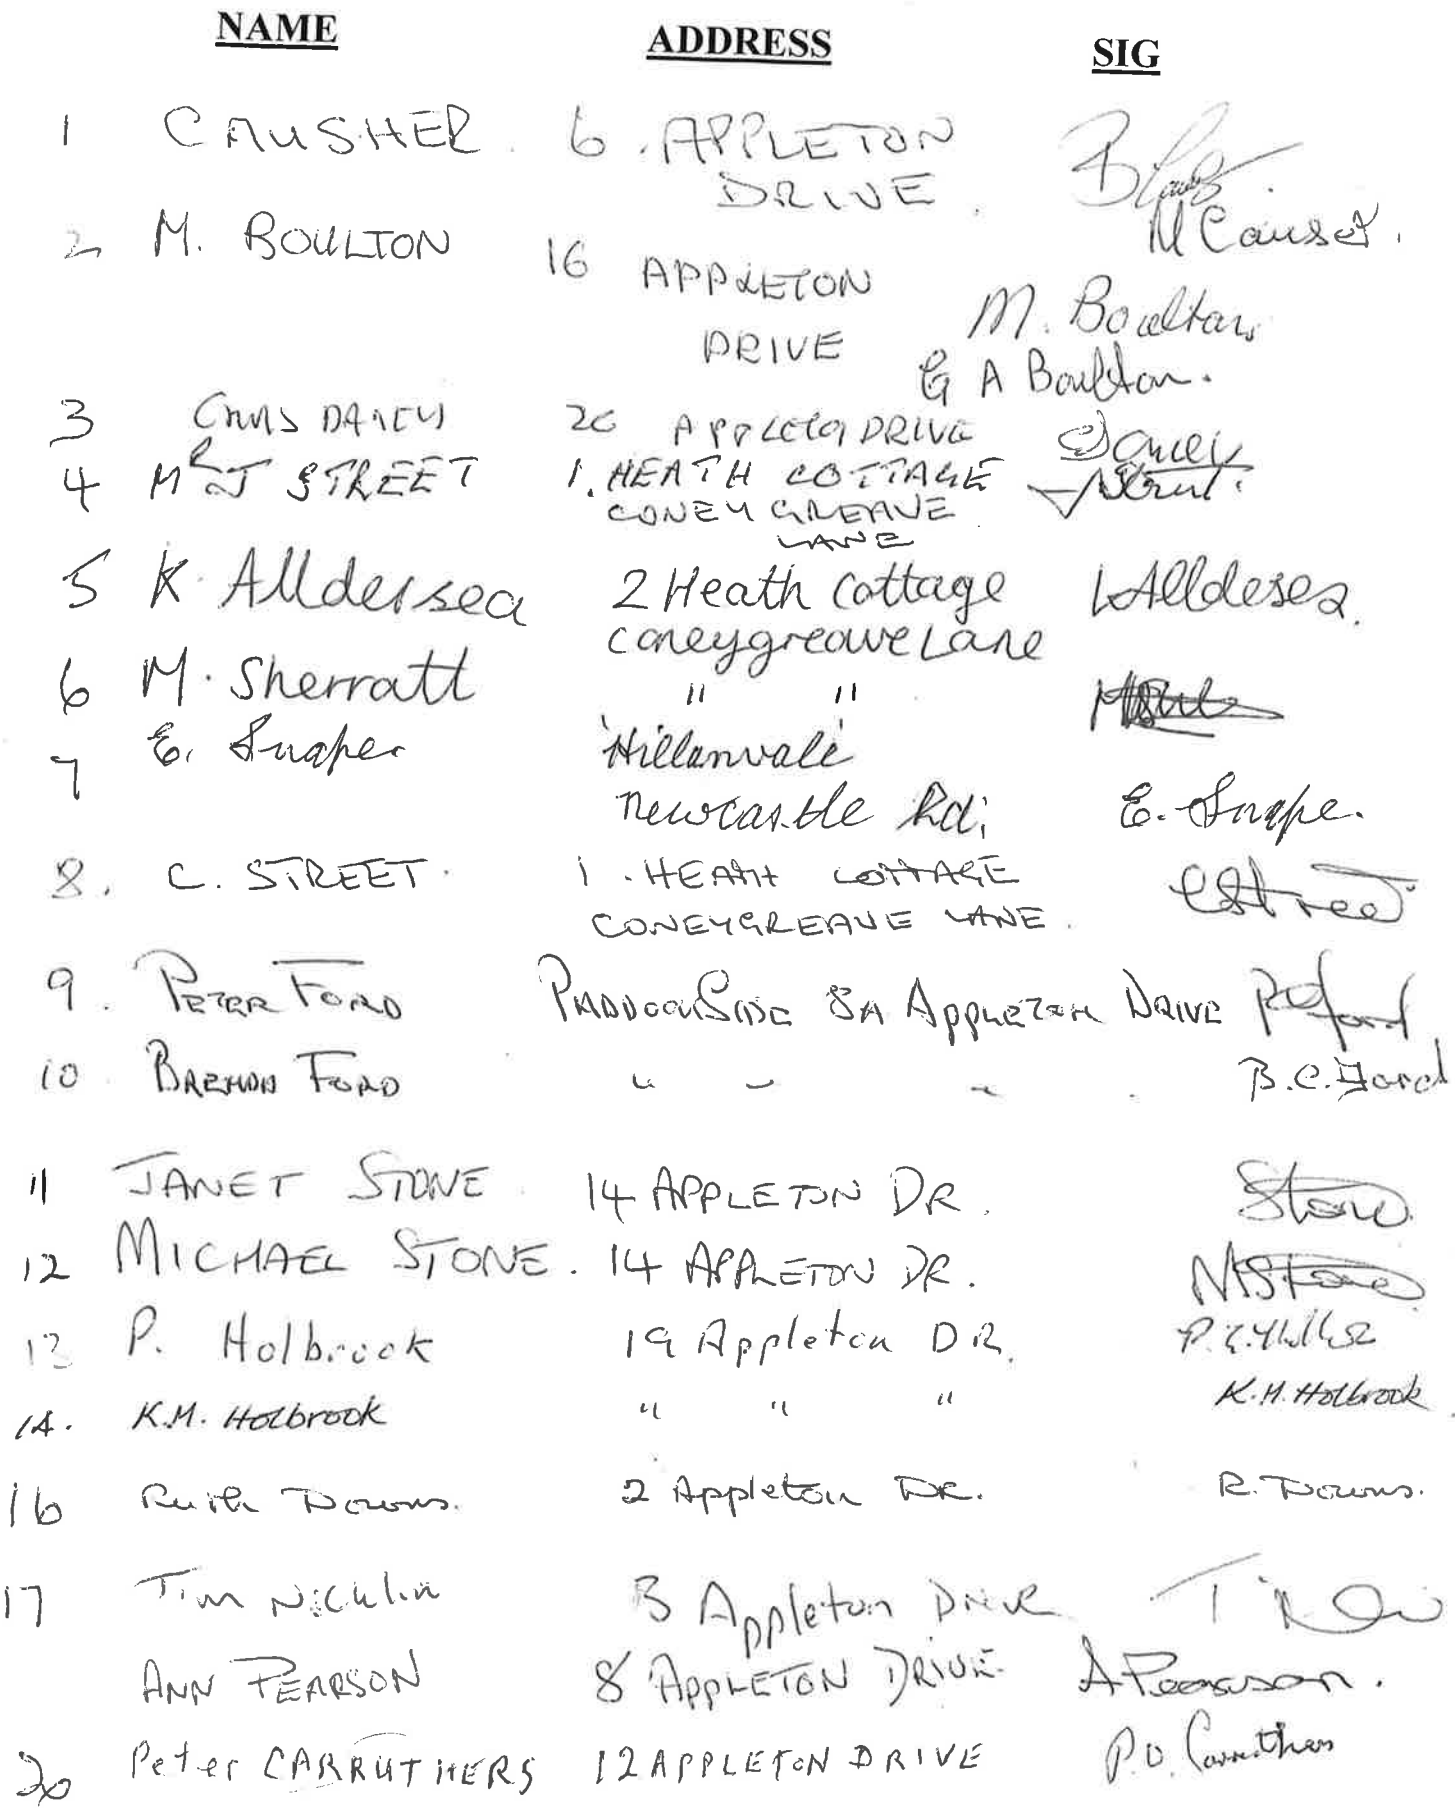 NAME ADDRESS SIG
1 CAUSHER. 6. APPLETON
DRIVE.
M Causer.
2 M. BOULTON 16 APPLETON
DRIVE M. Boulton
G A Boulton.
3 CHRIS DANCY 20 DRIVE Dancy
4 MR J STREET 1. HEATH COTTAGE
CONEYGREAVE
LANE
5 K. Alldersea 2 Heath Cottage
Coneygreave Lane
6 M. Sherratt " "
7 E. Snape 'Hillanvale'
Newcastle Rd; E. Snape.
8. C. STREET. 1. HEATH COTTAGE CStreet
CONEYGREAVE LANE.
9. PETER FORD PADDOCK SIDE 8A APPLETON DRIVE
10. FORD " " " B.C. Ford
11 JANET STONE 14 APPLETON DR. Stone
12 MICHAEL STONE. 14 APPLETON DR. MStone
13 P. Holbrook 19 Appleton DR.
14. K.M. Holbrook " " " K.M. Holbrook
16 Ruth Downs. 2 Appleton DR. R. Downs.
17 Tim Nicklin 3 Appleton Drive
ANN PEARSON 8 APPLETON DRIVE. A Pearson.
20 Peter CARRUTHERS 12 APPLETON DRIVE P.D. Carruthers